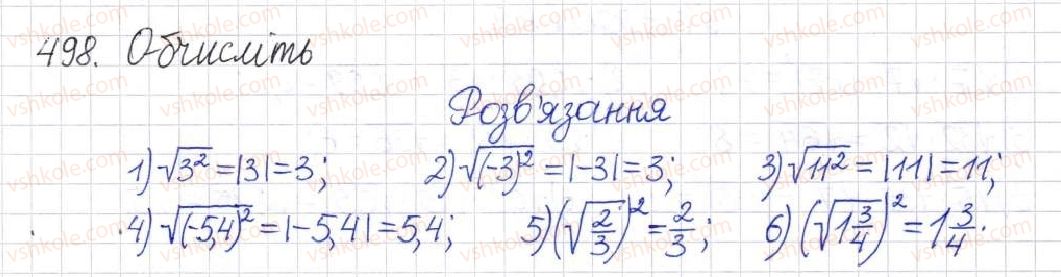 498. Обчисліть
Розв'язання
1) √3² = |3| = 3; 2) √(-3)² = |-3| = 3; 3) √11² = |11| = 11;
4) √(-5,4)² = |-5,4| = 5,4; 5) (√2/3)² = 2/3; 6) (√1 3/4)² = 1 3/4.